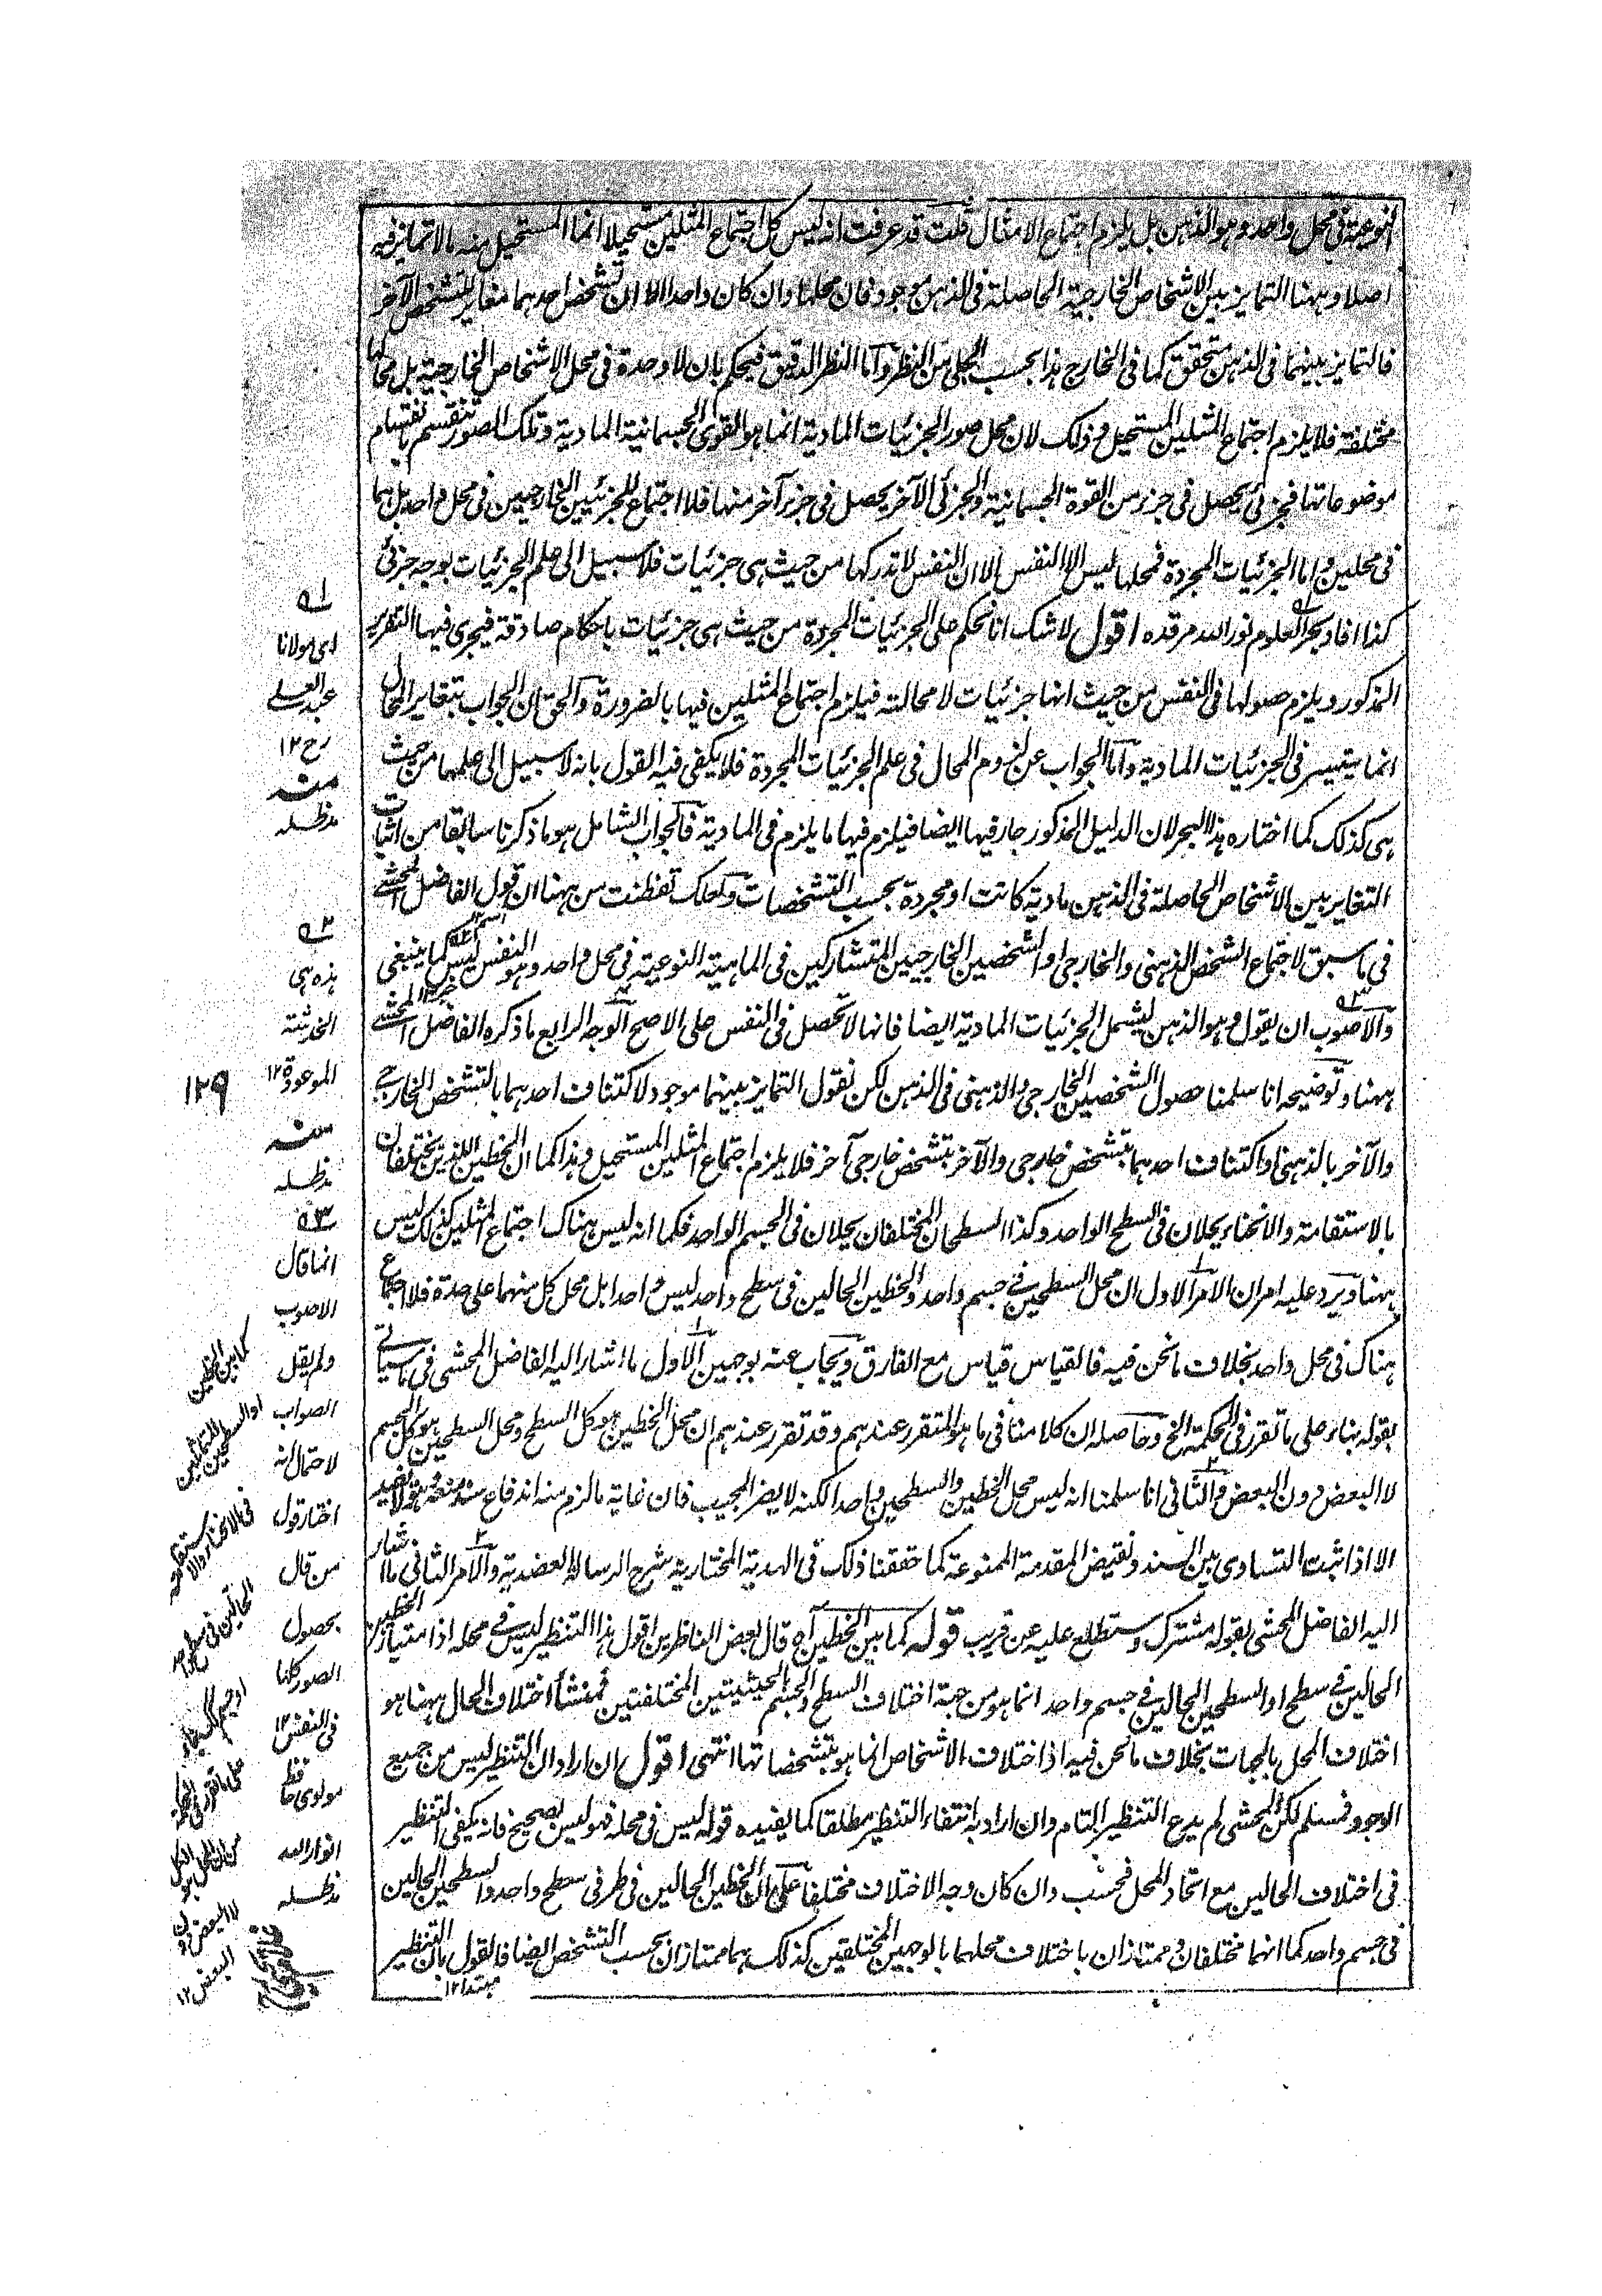 النوعية فى محل واحد وهو الذهن بل يلزم اجتماع الامثال قلت قد عرفت انه ليس كل اجتماع المثلين مستحيلا انما المستحيل منه ما لا تمايز فيه
اصلا وههنا التمايز بين الاشخاص الخارجية الحاصلة فى الذهن موجود فان محلها وان كان واحدا الا ان تشخص احدهما مغاير لتشخص الآخر
فالتمايز بينهما فى الذهن متحقق كما فى الخارج هذا بحسب الجلى من النظر واما النظر الدقيق فيحكم بان لا وحدة فى محل الاشخاص الخارجية بل محالها
مختلفة فلا يلزم اجتماع المثلين المستحيل وذلك لان محل صور الجزئيات المادية انما هو القوى الجسمانية المادية وتلك الصور تنقسم بانقسام
موضوعاتها فجزئى يحصل فى جزء من القوة الجسمانية والجزئى الآخر يحصل فى جزء آخر منها فلا اجتماع للجزئيين الخارجيين فى محل واحد بل هما
فى محلين واما الجزئيات المجردة فمحلها ليس الا النفس الا ان النفس لا تدركها من حيث هى جزئيات فلا سبيل الى علم الجزئيات بوجه جزئى
كذا افاد بحر العلوم نور الله مرقده اقول لا شك انا نحكم على الجزئيات المجردة من حيث هى جزئيات باحكام صادقة فيجرى فيها التقرير
المذكور ويلزم حصولها فى النفس من حيث انها جزئيات لا محالة فيلزم اجتماع المثلين فيها بالضرورة والحق ان الجواب بتغاير المحال
انما يتيسر فى الجزئيات المادية واما الجواب عن لزوم المحال فى علم الجزئيات المجردة فلا يكفى فيه القول بانه لا سبيل الى علمها من حيث
هى كذلك كما اختاره هذا البحر لان الدليل المذكور جار فيها ايضا فيلزم فيها ما يلزم فى المادية فالجواب الشامل هو ما ذكرنا سابقا من اثبات
التغاير بين الاشخاص الحاصلة فى الذهن مادية كانت او مجردة بحسب التشخصات ولعلك تفطنت من ههنا ان قول الفاضل المحشى
فى ما سبق لاجتماع الشخص الذهنى والخارجى او الشخصين الخارجيين المتشاركين فى الماهية النوعية فى محل واحد وهو النفس ليس كما ينبغى
والاصوب ان يقول وهو الذهن ليشمل الجزئيات المادية ايضا فانها لا تحصل فى النفس على الاصح الوجه الرابع ما ذكره الفاضل المحشى
ههنا وتوضيحه انا سلمنا حصول الشخصين الخارجى والذهنى فى الذهن لكن نقول التمايز بينهما موجود لاكتناف احدهما بالتشخص الخارجى
والآخر بالذهنى او اكتناف احدهما بتشخص خارجى والآخر بتشخص خارجى آخر فلا يلزم اجتماع المثلين المستحيل وهذا كما ان الخطين اللذين يختلفان
بالاستقامة والانحناء يحلان فى السطح الواحد وكذا السطحان المختلفان يحلان فى الجسم الواحد فكما انه ليس هناك اجتماع المثلين كذلك ليس
ههنا ويرد عليه امران الامر الاول ان محل السطحين فى جسم واحد والخطين الحالين فى سطح واحد ليس واحدا بل محل كل منهما على حدة فلا اجتماع
هناك فى محل واحد بخلاف ما نحن فيه فالقياس قياس مع الفارق ويجاب عنه بوجهين الاول ما اشار اليه الفاضل المحشى فى ما سيأتى
بقوله بناء على ما تقرر فى الحكمة الخ وحاصله ان كلامنا فى ما هو المتقرر عندهم وقد تقرر عندهم ان محل الخطين هو كل السطح ومحل السطحين هو كل الجسم
لا البعض دون البعض والثانى انا سلمنا انه ليس محل الخطين والسطحين واحدا لكنه لا يضر المجيب فان غاية ما لزم منه اندفاع سند منعه وهو لا يفيد
الا اذا ثبت التساوى بين السند ونقيض المقدمة الممنوعة كما حققنا ذلك فى الهدية المختارية شرح الرسالة العضدية والامر الثانى ما اشار
اليه الفاضل المحشى بقوله مشترك وستطلع عليه عن قريب قوله كما بين الخطين آه قال بعض الناظرين اقول هذا التنظير ليس فى محله اذ امتياز الخطين
الحالين فى سطح او السطحين الحالين فى جسم واحد انما هو من جهة اختلاف السطح والجسم بالحيثيتين المختلفتين فمنشأ اختلاف الحال ههنا هو
اختلاف المحل بالجهات بخلاف ما نحن فيه اذ اختلاف الاشخاص انما هو بتشخصاتها انتهى اقول ان اراد ان التنظير ليس من جميع
الوجوه فمسلم لكن المحشى لم يدع التنظير التام وان اراد به انتفاء التنظير مطلقا كما يفيده قوله ليس فى محله فهو ليس بصحيح فانه يكفى التنظير
فى اختلاف الحالين مع اتحاد المحل فحسب وان كان وجه الاختلاف مختلفا على ان الخطين الحالين فى طرفى سطح واحد والسطحين الحالين
فى جسم واحد كما انهما مختلفان وممتازان باختلاف محلهما بالوجهين المختلفين كذلك هما ممتازان بحسب التشخص ايضا فالقول بان التنظير
مبتدا ١٢
١ه
اى مولانا
عبد العلى
رح ١٢
منه
مدظله
٢ه
هذه هى
الخدشة
الموعودة ١٢
منه
مدظله
١٢٩
٣ه
انما قال
الاصوب
ولم يقل
الصواب
لاحتمال انه
اختار قول
من قال
بحصول
الصور كلها
فى النفس ١٢
مولوى حافظ
انوار الله
مدظله
كما بين الخطين
او السطحين
الحالين فى سطح واحد
لا البعض دون
البعض ١٢